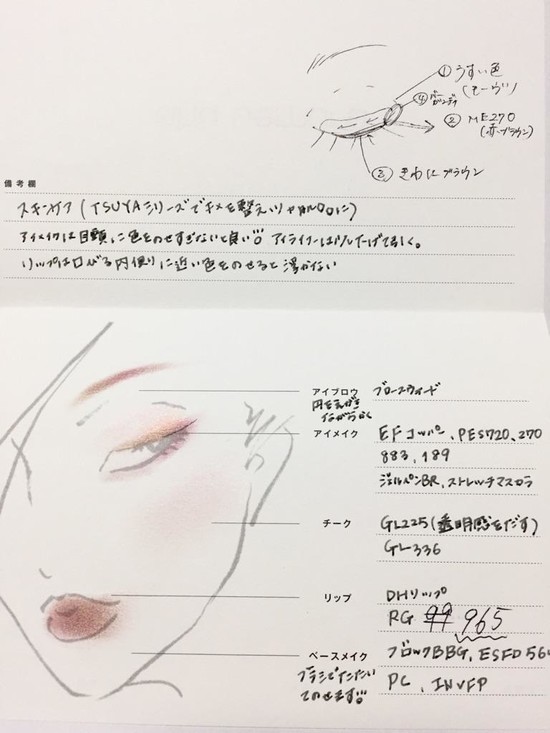 ①うすい色
(モーヴ)
④バーガンディ
② ME270
(赤ブラウン)
③きわにブラウン
備考欄
スキンケア(TSUYAシリーズでキメを整えツヤ肌に)
アイメイクは目頭に色をのせすぎないと良い!! アイライナーは少し下げて引く。
リップは口びる内側に近い色をのせると浮かない
アイブロウ ブロースウィード
円をえがき
ながららく
アイメイク EFコッパー、PES720、270
883、189
ジェルペンBR、ストレッチマスカラ
チーク GL225(透明感をだす)
GL336
リップ DHリップ
RG 965
ベースメイク ブロックBBG、ESFD 56
ブラシでたたいて
のせます!! PC、INVFP